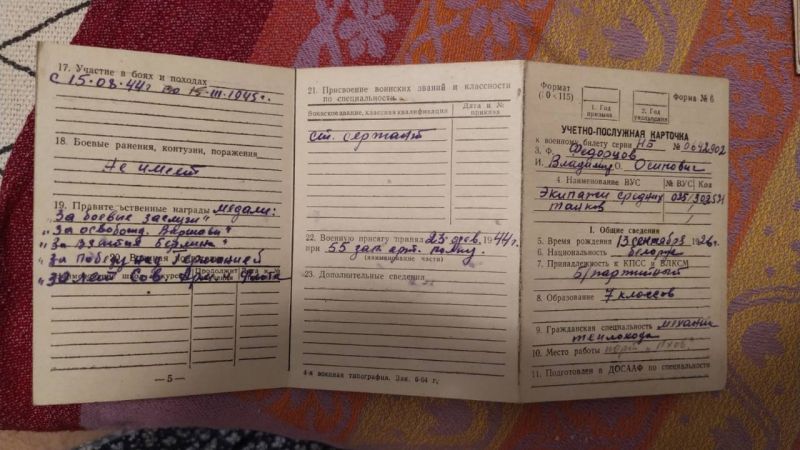 17. Участие в боях и походах
с 15.08.44г по 15.III.1945г.
18. Боевые ранения, контузии, поражения
не имеет
19. Правительственные награды медали:
"За боевые заслуги"
"за освобожд. Варшавы"
"За взятия Берлина"
"за победу над Германией
"30 лет Сов. Арм. и Флота
— 5 —
21. Присвоение воинских званий и классности
по специальности
Воинское звание, классная квалификация
Дата и №
приказа
ст. сержант
22. Военную присягу принял 23 фев. 1944 г.
при 55 зап. арт. полку.
(наименование части)
23. Дополнительные сведения
4-я военная типография. Зак. 6-64 г.
Формат
1. Год
призыва
2. Год
увольнения
Форма № 6
УЧЕТНО-ПОСЛУЖНАЯ КАРТОЧКА
к военному билету серии НБ № 0642902
3. Ф. Федорцов
И. Владимир О. Осипович
4. Наименование ВУС
№ ВУС
Код
Экипажи средних
танков
I. Общие сведения
5. Время рождения 13 сентября 1926 г.
6. Национальность
7. Принадлежность к КПСС и ВЛКСМ
б/партийный
8. Образование 7 классов
9. Гражданская специальность механик
теплохода
10. Место работы порт
11. Подготовлен в ДОСААФ по специальности